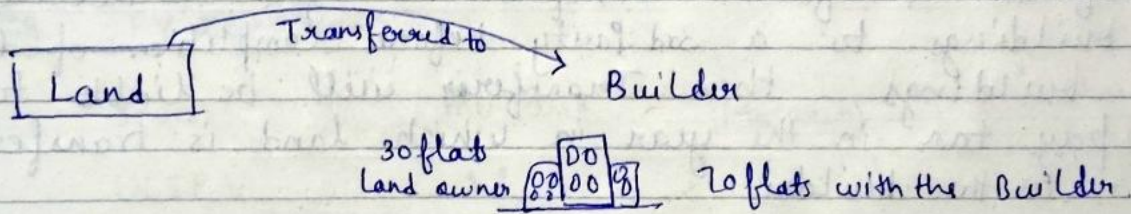 Transferred to
Land
Builder
30 flats
Land owner 70 flats with the Builder